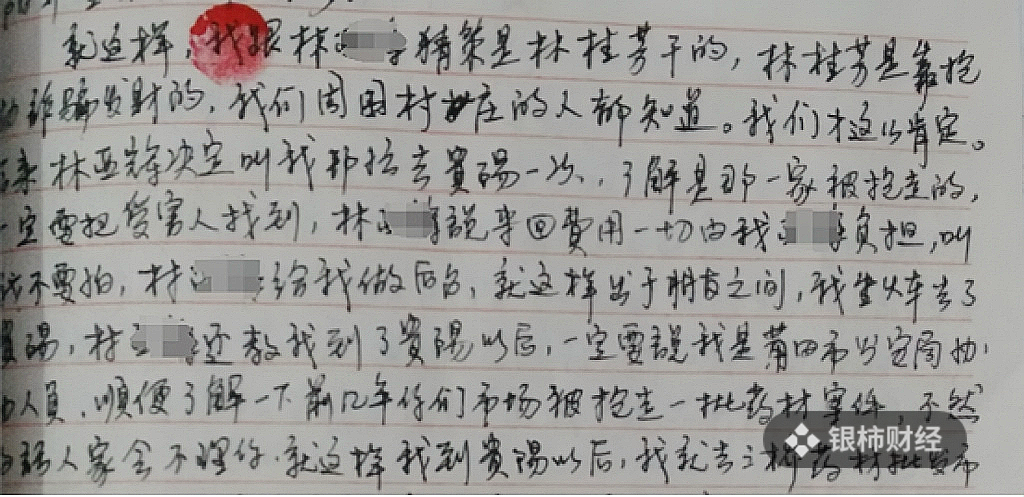 就这样,我跟林 猜策是林桂芳干的,林桂芳是靠抢
诈骗发财的,我们周围村庄的人都知道。我们才这以肯定。
来林亚 决定叫我 去貴陽一次,了解是那一家被抢走的,
一定要把受害人找到,林 說来回費用一切由我 負担,叫
我不要怕,林 给我做后台,就这样出于朋友之间,我坐火车去了
貴陽,林 还教我到了貴陽以后,一定要說我是莆田市公安局协
人員,順便了解一下前几年你们市场被抢走一批药材案件,不然
人家会不理你,就这样我到貴陽以后,我就去 药材批发市
银柿财经